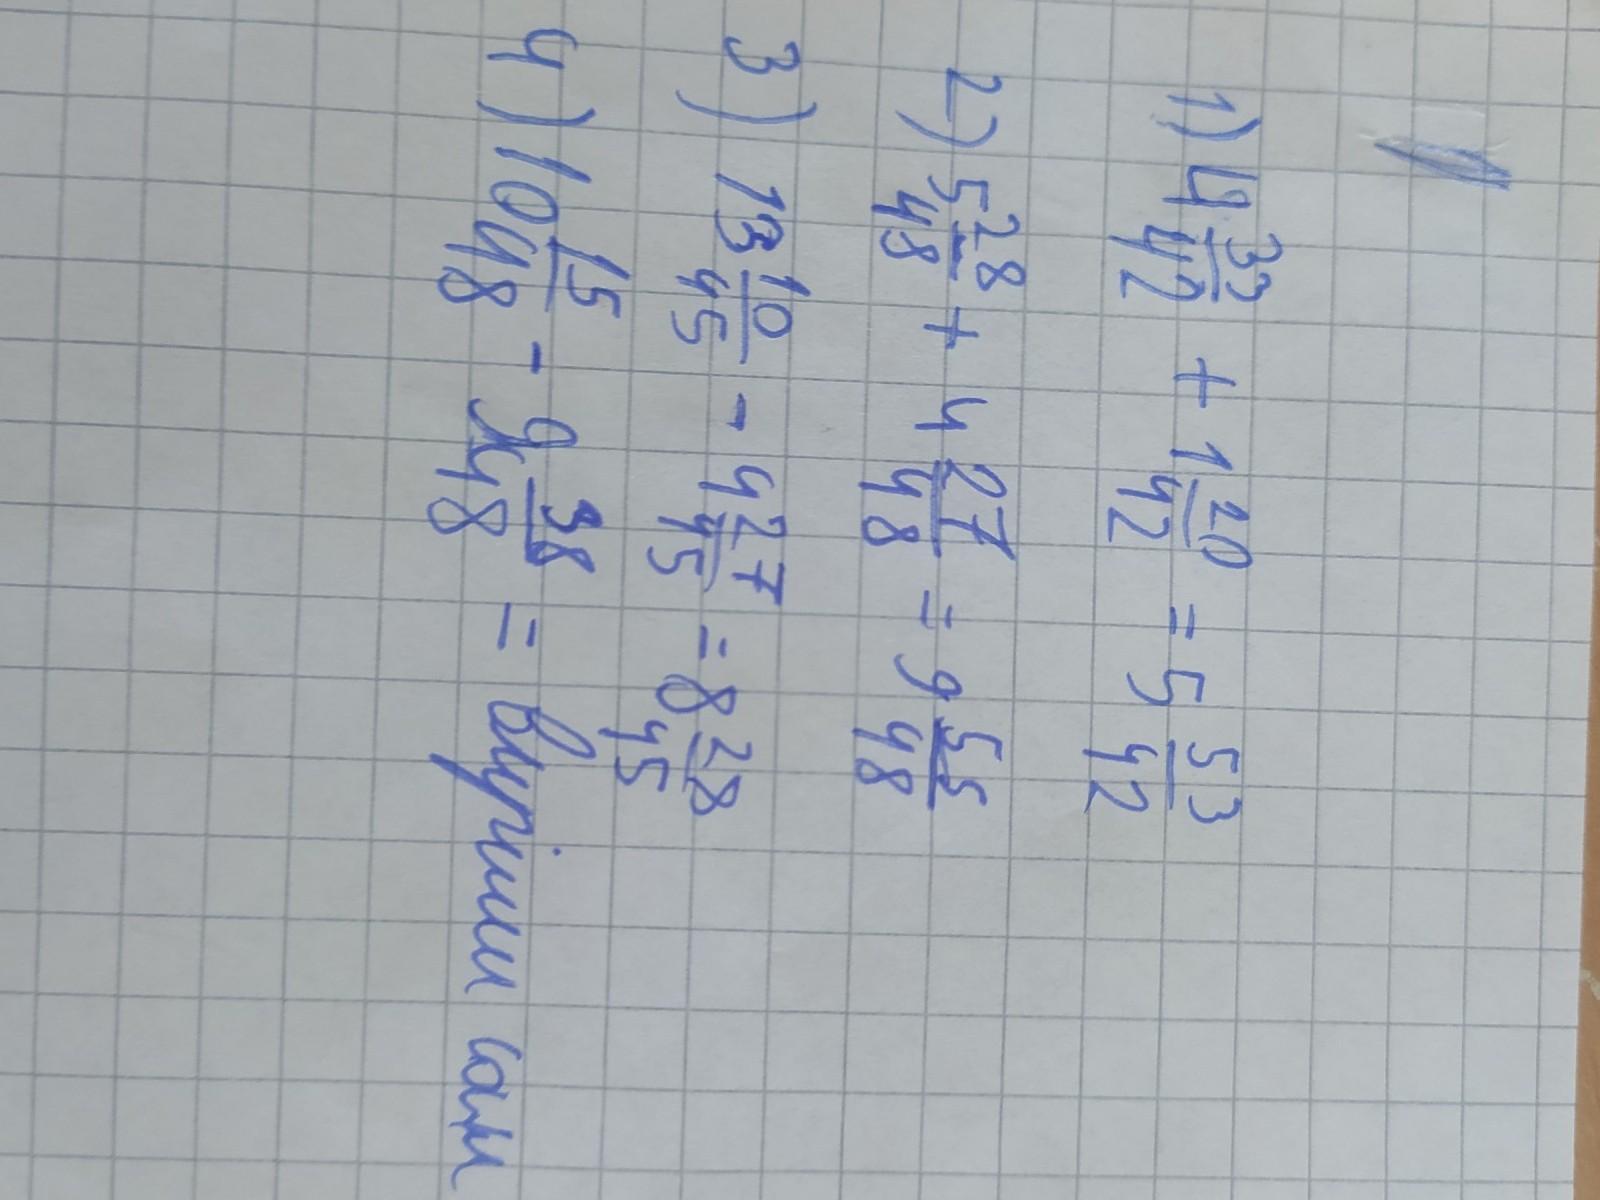 1) 4 33/42 + 1 20/42 = 5 53/42
2) 5 28/48 + 4 27/48 = 9 55/48
3) 13 10/45 - 4 27/45 = 8 28/45
4) 10 15/48 - 9 38/48 = виріши сам